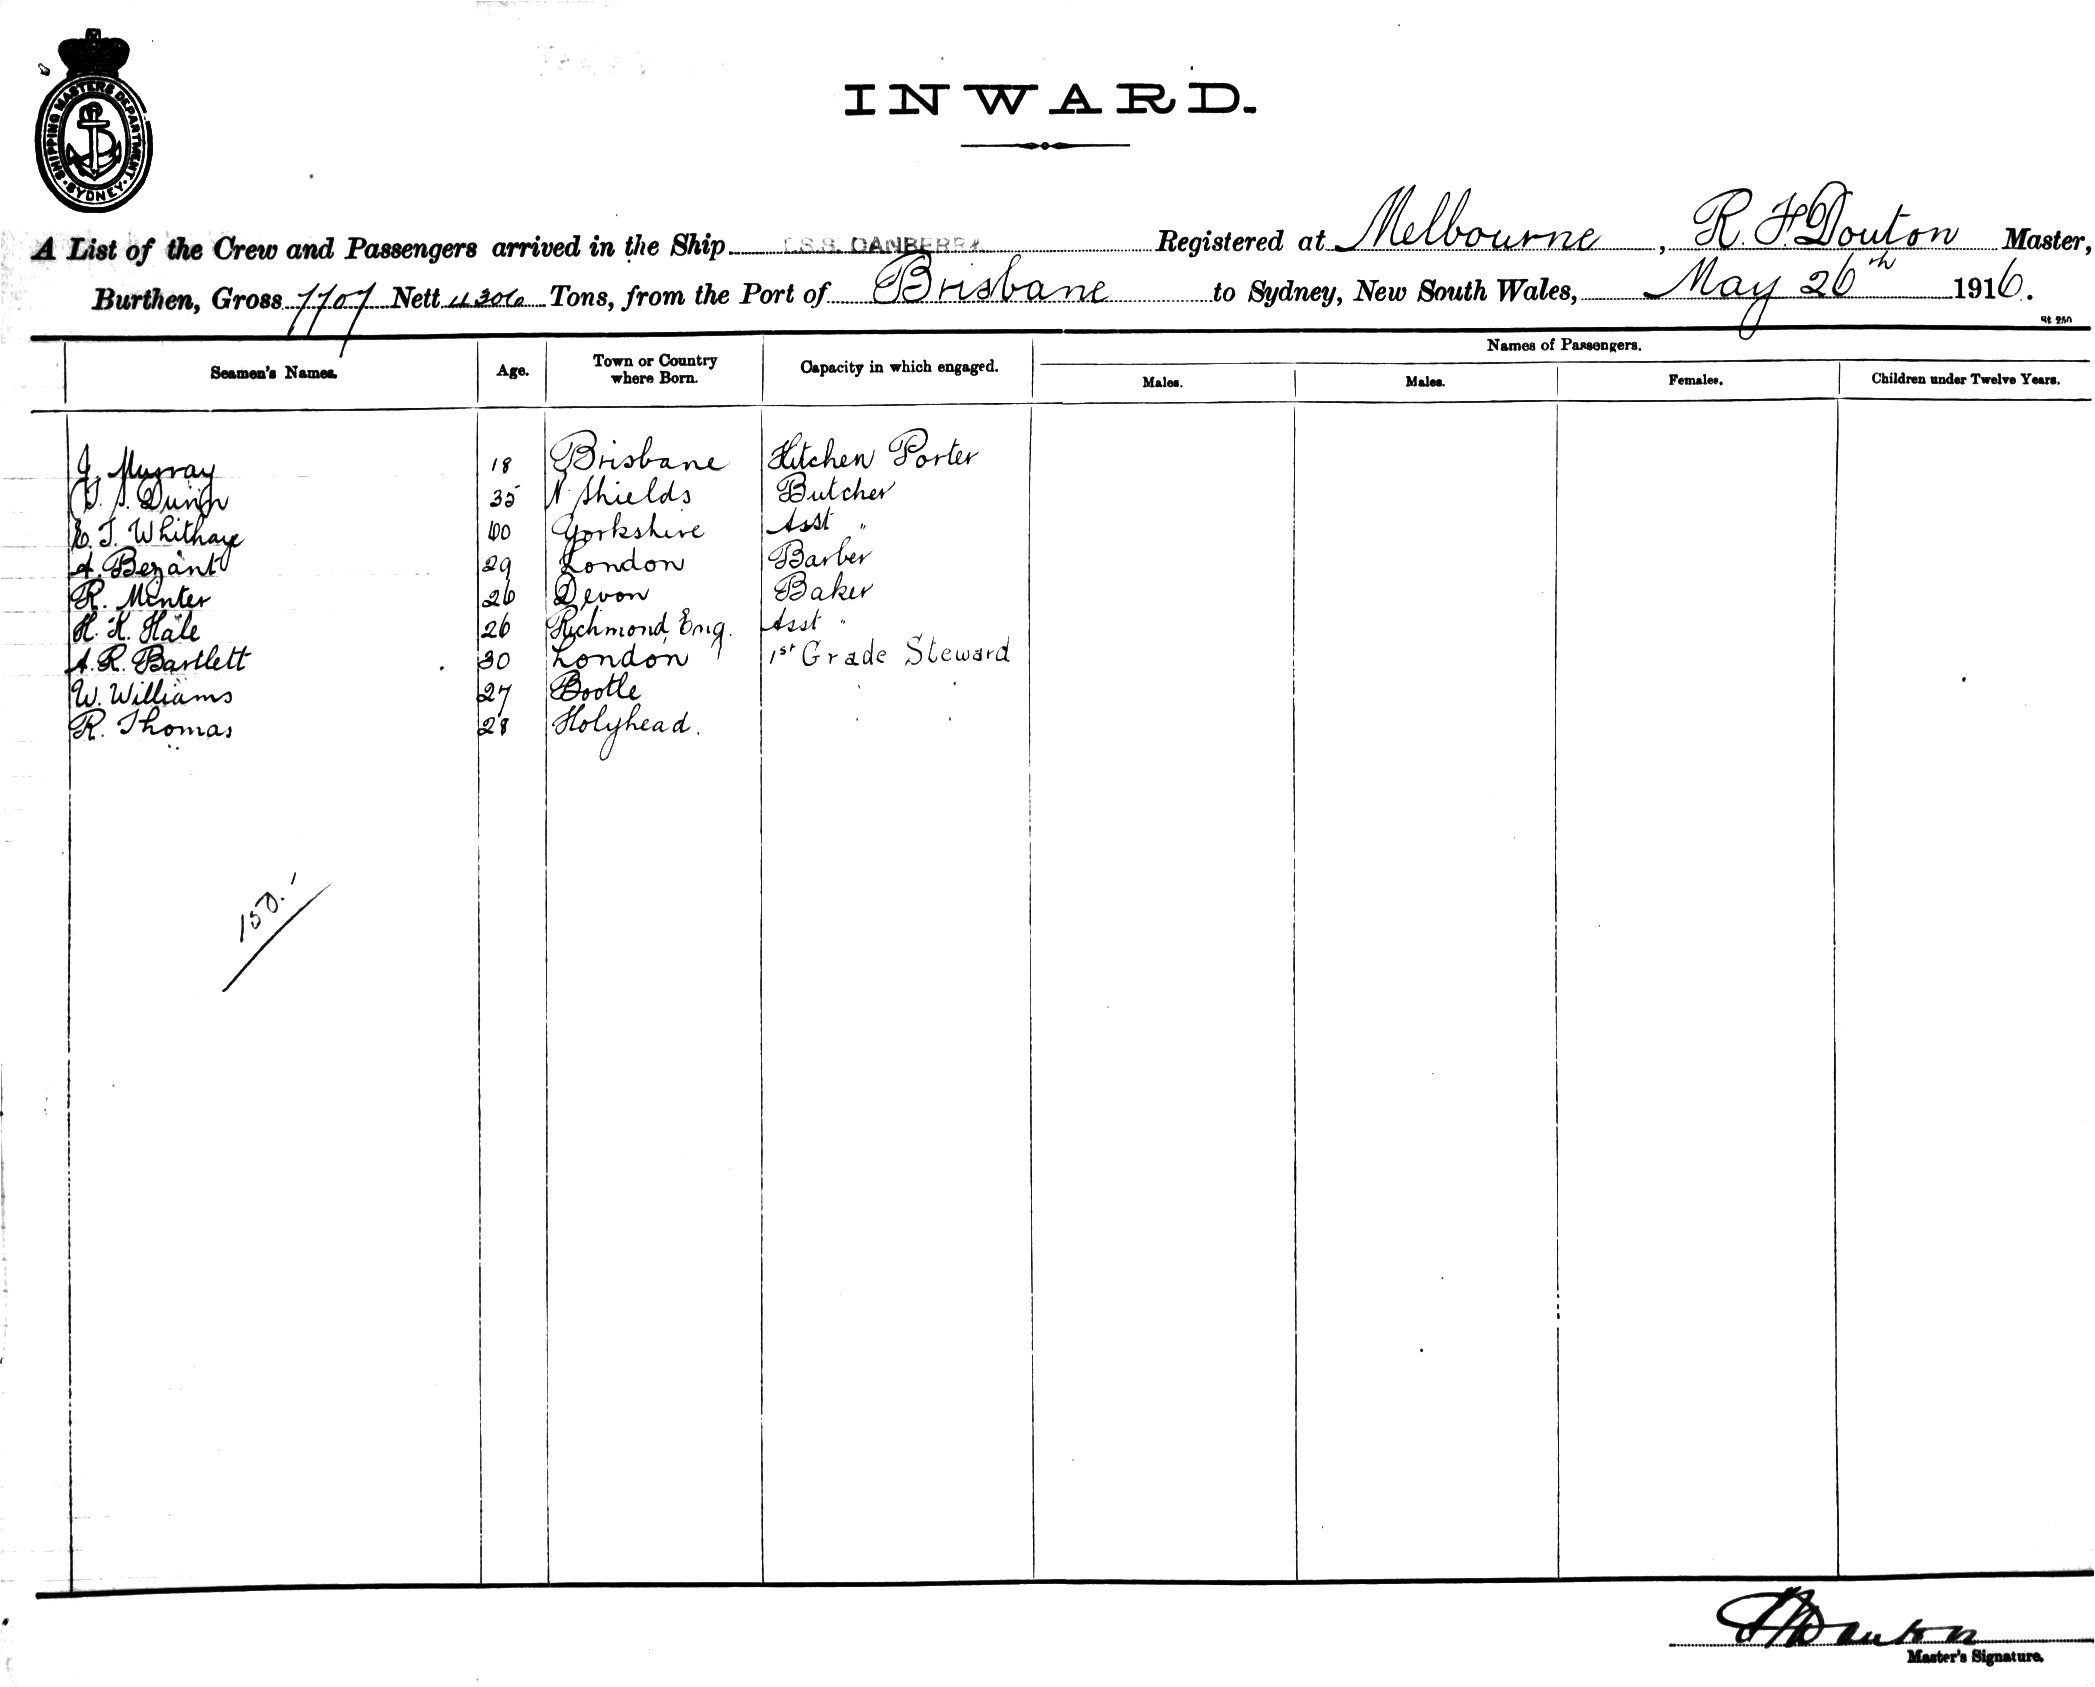 SHIPPING MASTERS DEPARTMENT
SYDNEY
INWARD.
A List of the Crew and Passengers arrived in the Ship S.S. CANBERRA Registered at Melbourne, R. F. Douton Master,
Burthen, Gross 7707 Nett Tons, from the Port of Brisbane to Sydney, New South Wales, May 26th 1916.
St 250
Seamen's Names. Age. Town or Country where Born. Capacity in which engaged. Names of Passengers.
Males. Males. Females. Children under Twelve Years.
J. Murray 18 Brisbane Kitchen Porter
Dunn 35 N. Shields Butcher
E. J. 40 Yorkshire Asst "
A. Bezant 29 London Barber
R. Minter 26 Devon Baker
H. K. Hale 26 Richmond, Eng. Asst "
A. R. Bartlett 30 London 1st Grade Steward
W. Williams 27 Bootle
R. Thomas 28 Holyhead.
150.
Master's Signature.